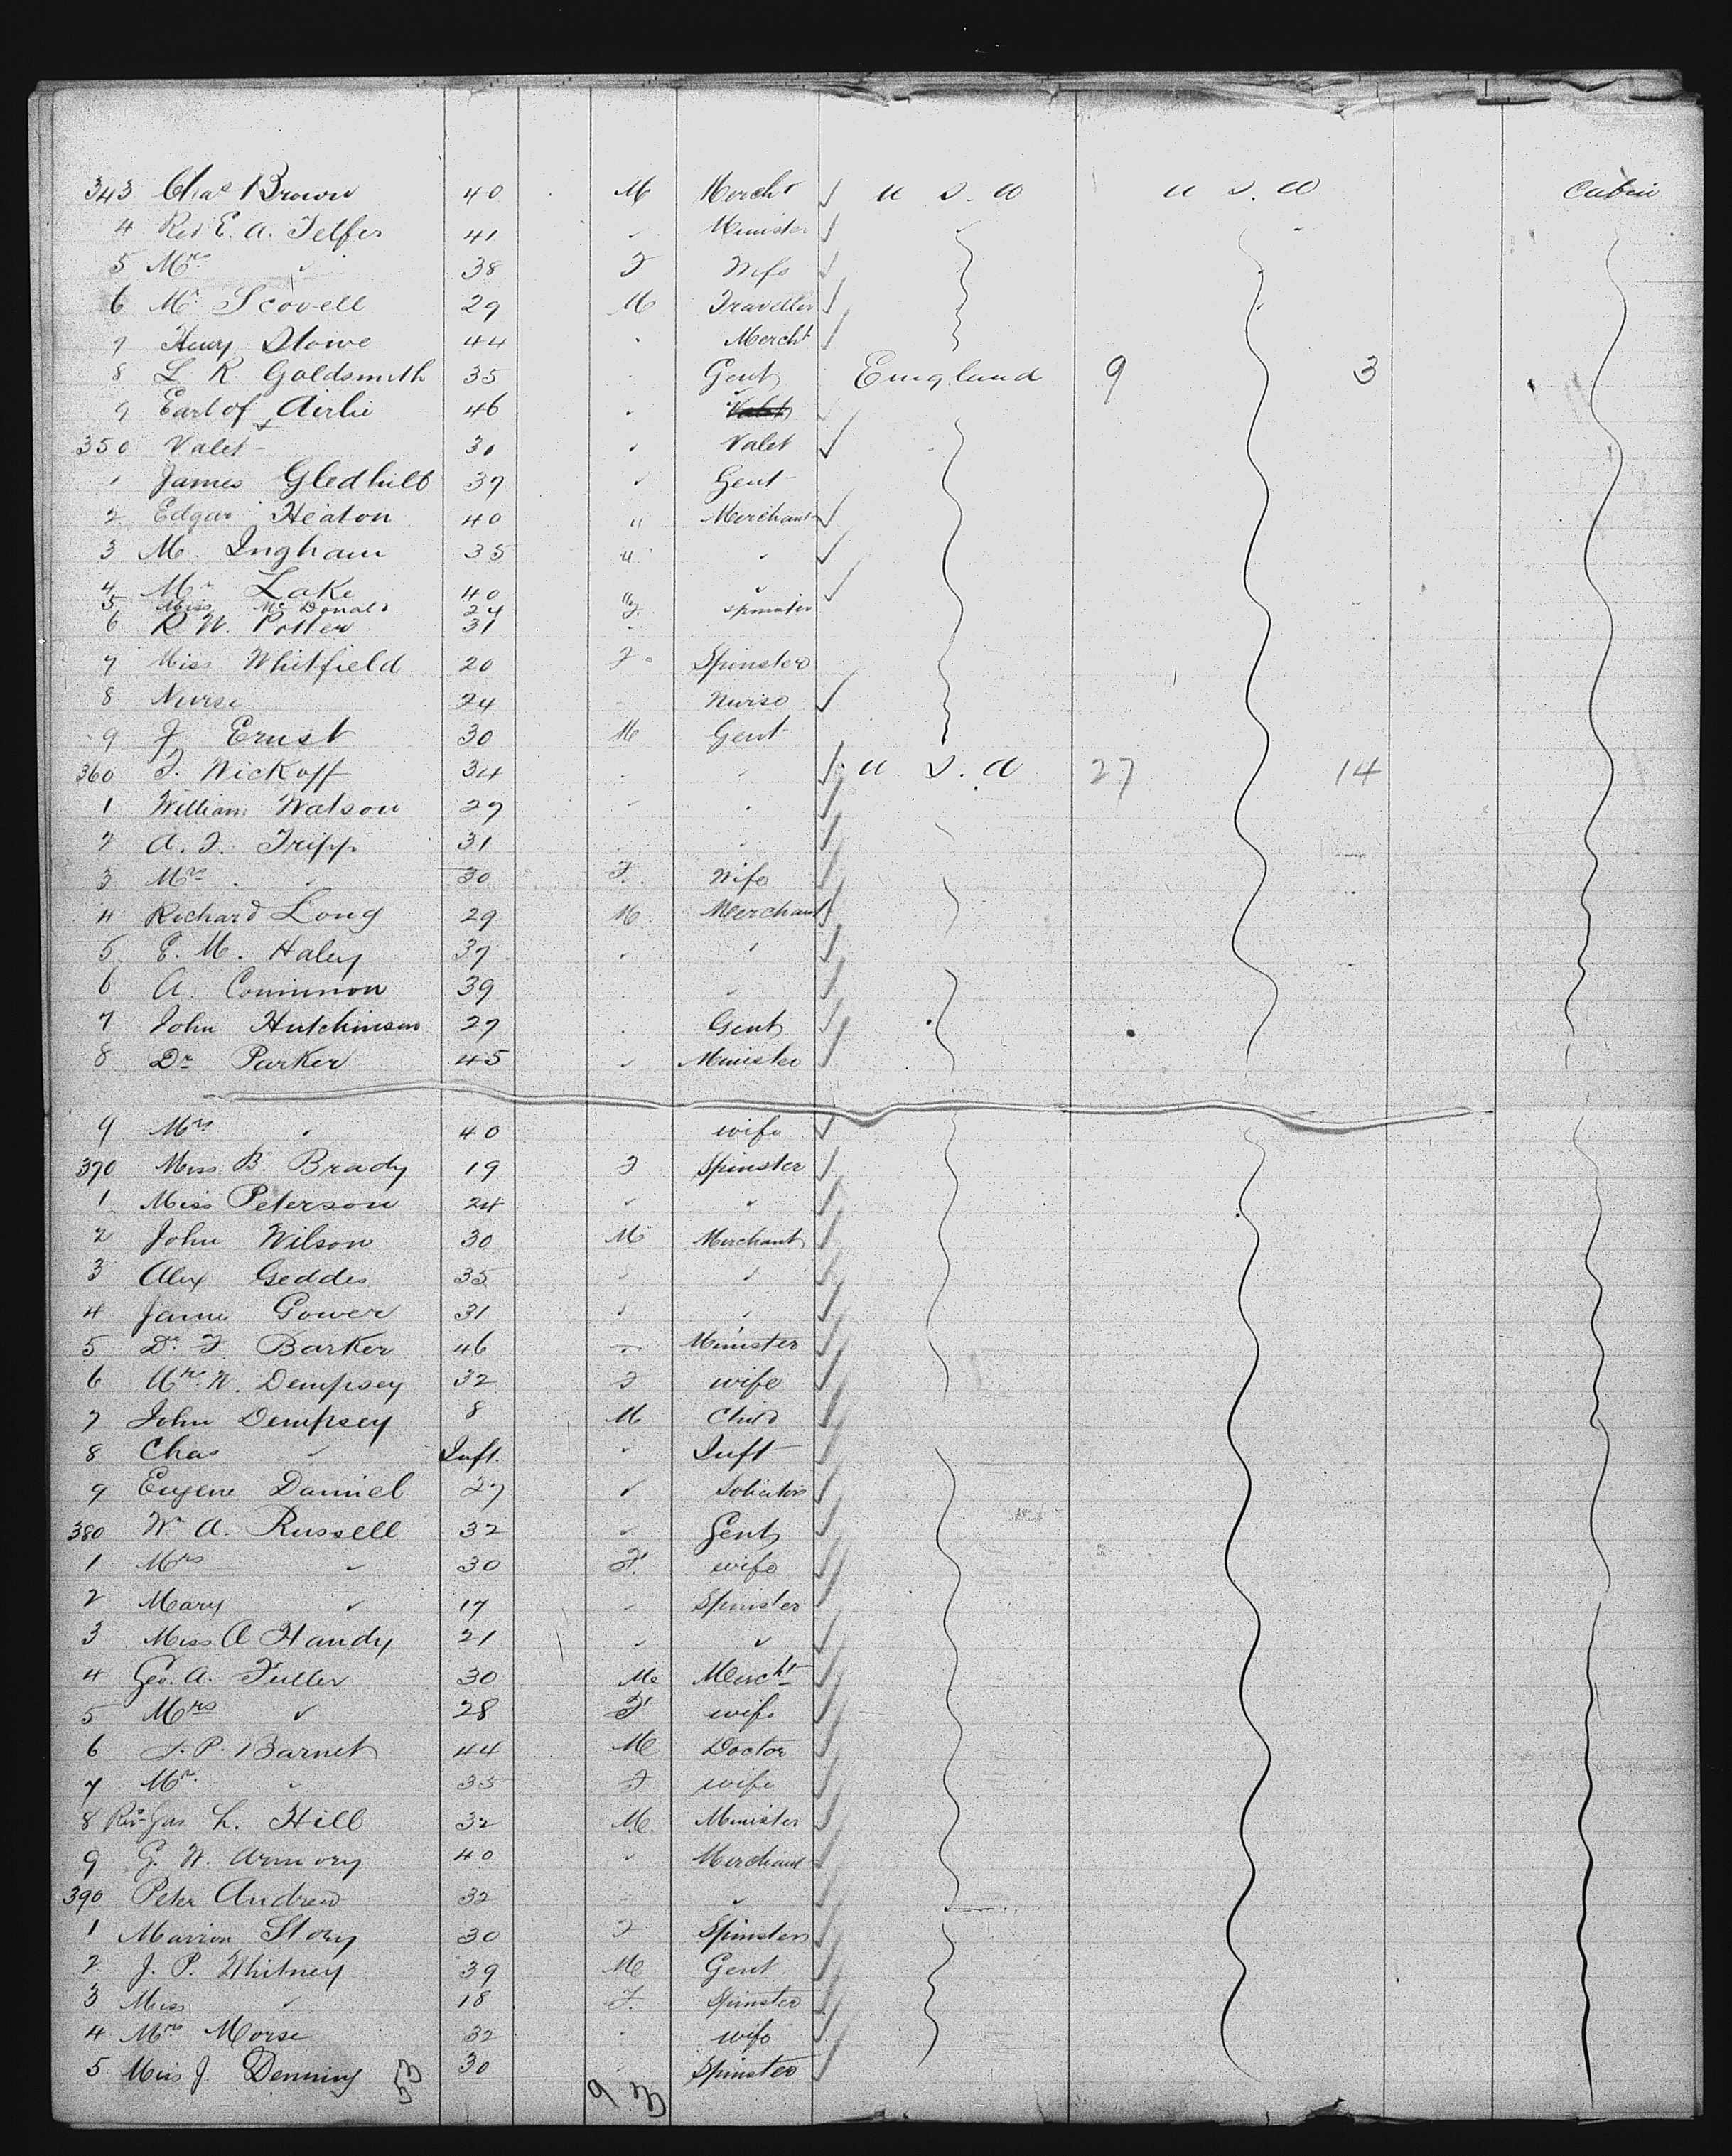 343 Chas Brown 40 M Mercht U S. A U S. A Cabin
4 Rev E. A. Telfer 41 " Minister
5 Mrs " 38 F Wife
6 Mr Scovell 29 M Traveller
7 Henry Stowe 44 " Mercht
8 L R Goldsmith 35 " Gent England 9 3
9 Earl of Airlie 46 "
350 Valet 30 " Valet
1 James Gledhill 37 " Gent
2 Edgar Heaton 40 " Merchant
3 M. Ingham 35 " "
4 Mr Lake 40 " "
5 Miss Mc Donald 24 F spinster
6 R W. Potter 31
7 Miss Whitfield 20 F Spinster
8 Nurse 24 Nurse
9 J Ernst 30 M Gent
360 F. Wickoff 34 " " U S. A 27 14
1 William Watson 27 " "
2 A. F. Tripp 31 " "
3 Mrs " 30 F. Wife
4 Richard Long 29 M. Merchant
5 E. M. Haley 37 " "
6 A. Common 39 " "
7 John Hutchinson 27 " Gent
8 Dr Parker 45 " Minister
9 Mrs " 40 wife
370 Miss B. Brady 19 F Spinster
1 Miss Peterson 24 " "
2 John Wilson 30 M Merchant
3 Alex Geddes 35 " "
4 James Gower 31 " "
5 Dr F Barker 46 " Minister
6 Mrs W. Dempsey 32 F wife
7 John Dempsey 8 M Child
8 Chas " Inft. " Inft
9 Eugene Daniel 27 " Solicitor
380 Wm A. Russell 32 " Gent
1 Mrs " 30 F. wife
2 Mary " 17 " Spinster
3 Miss A Handy 21 " "
4 Geo. A. Fuller 30 M Mercht
5 Mrs " 28 F wife
6 J. P. Barnet 44 M Doctor
7 Mrs " 35 F wife
8 Revd Jas L. Hill 32 M. Minister
9 G. W. Armory 40 " Merchant
390 Peter Andrew 32 " "
1 Marion Story 30 F Spinster
2 J. P. Whitney 39 M Gent
3 Miss " 18 F. Spinster
4 Mrs Morse 32 " wife
5 Miss J. Denning 30 " Spinster
53